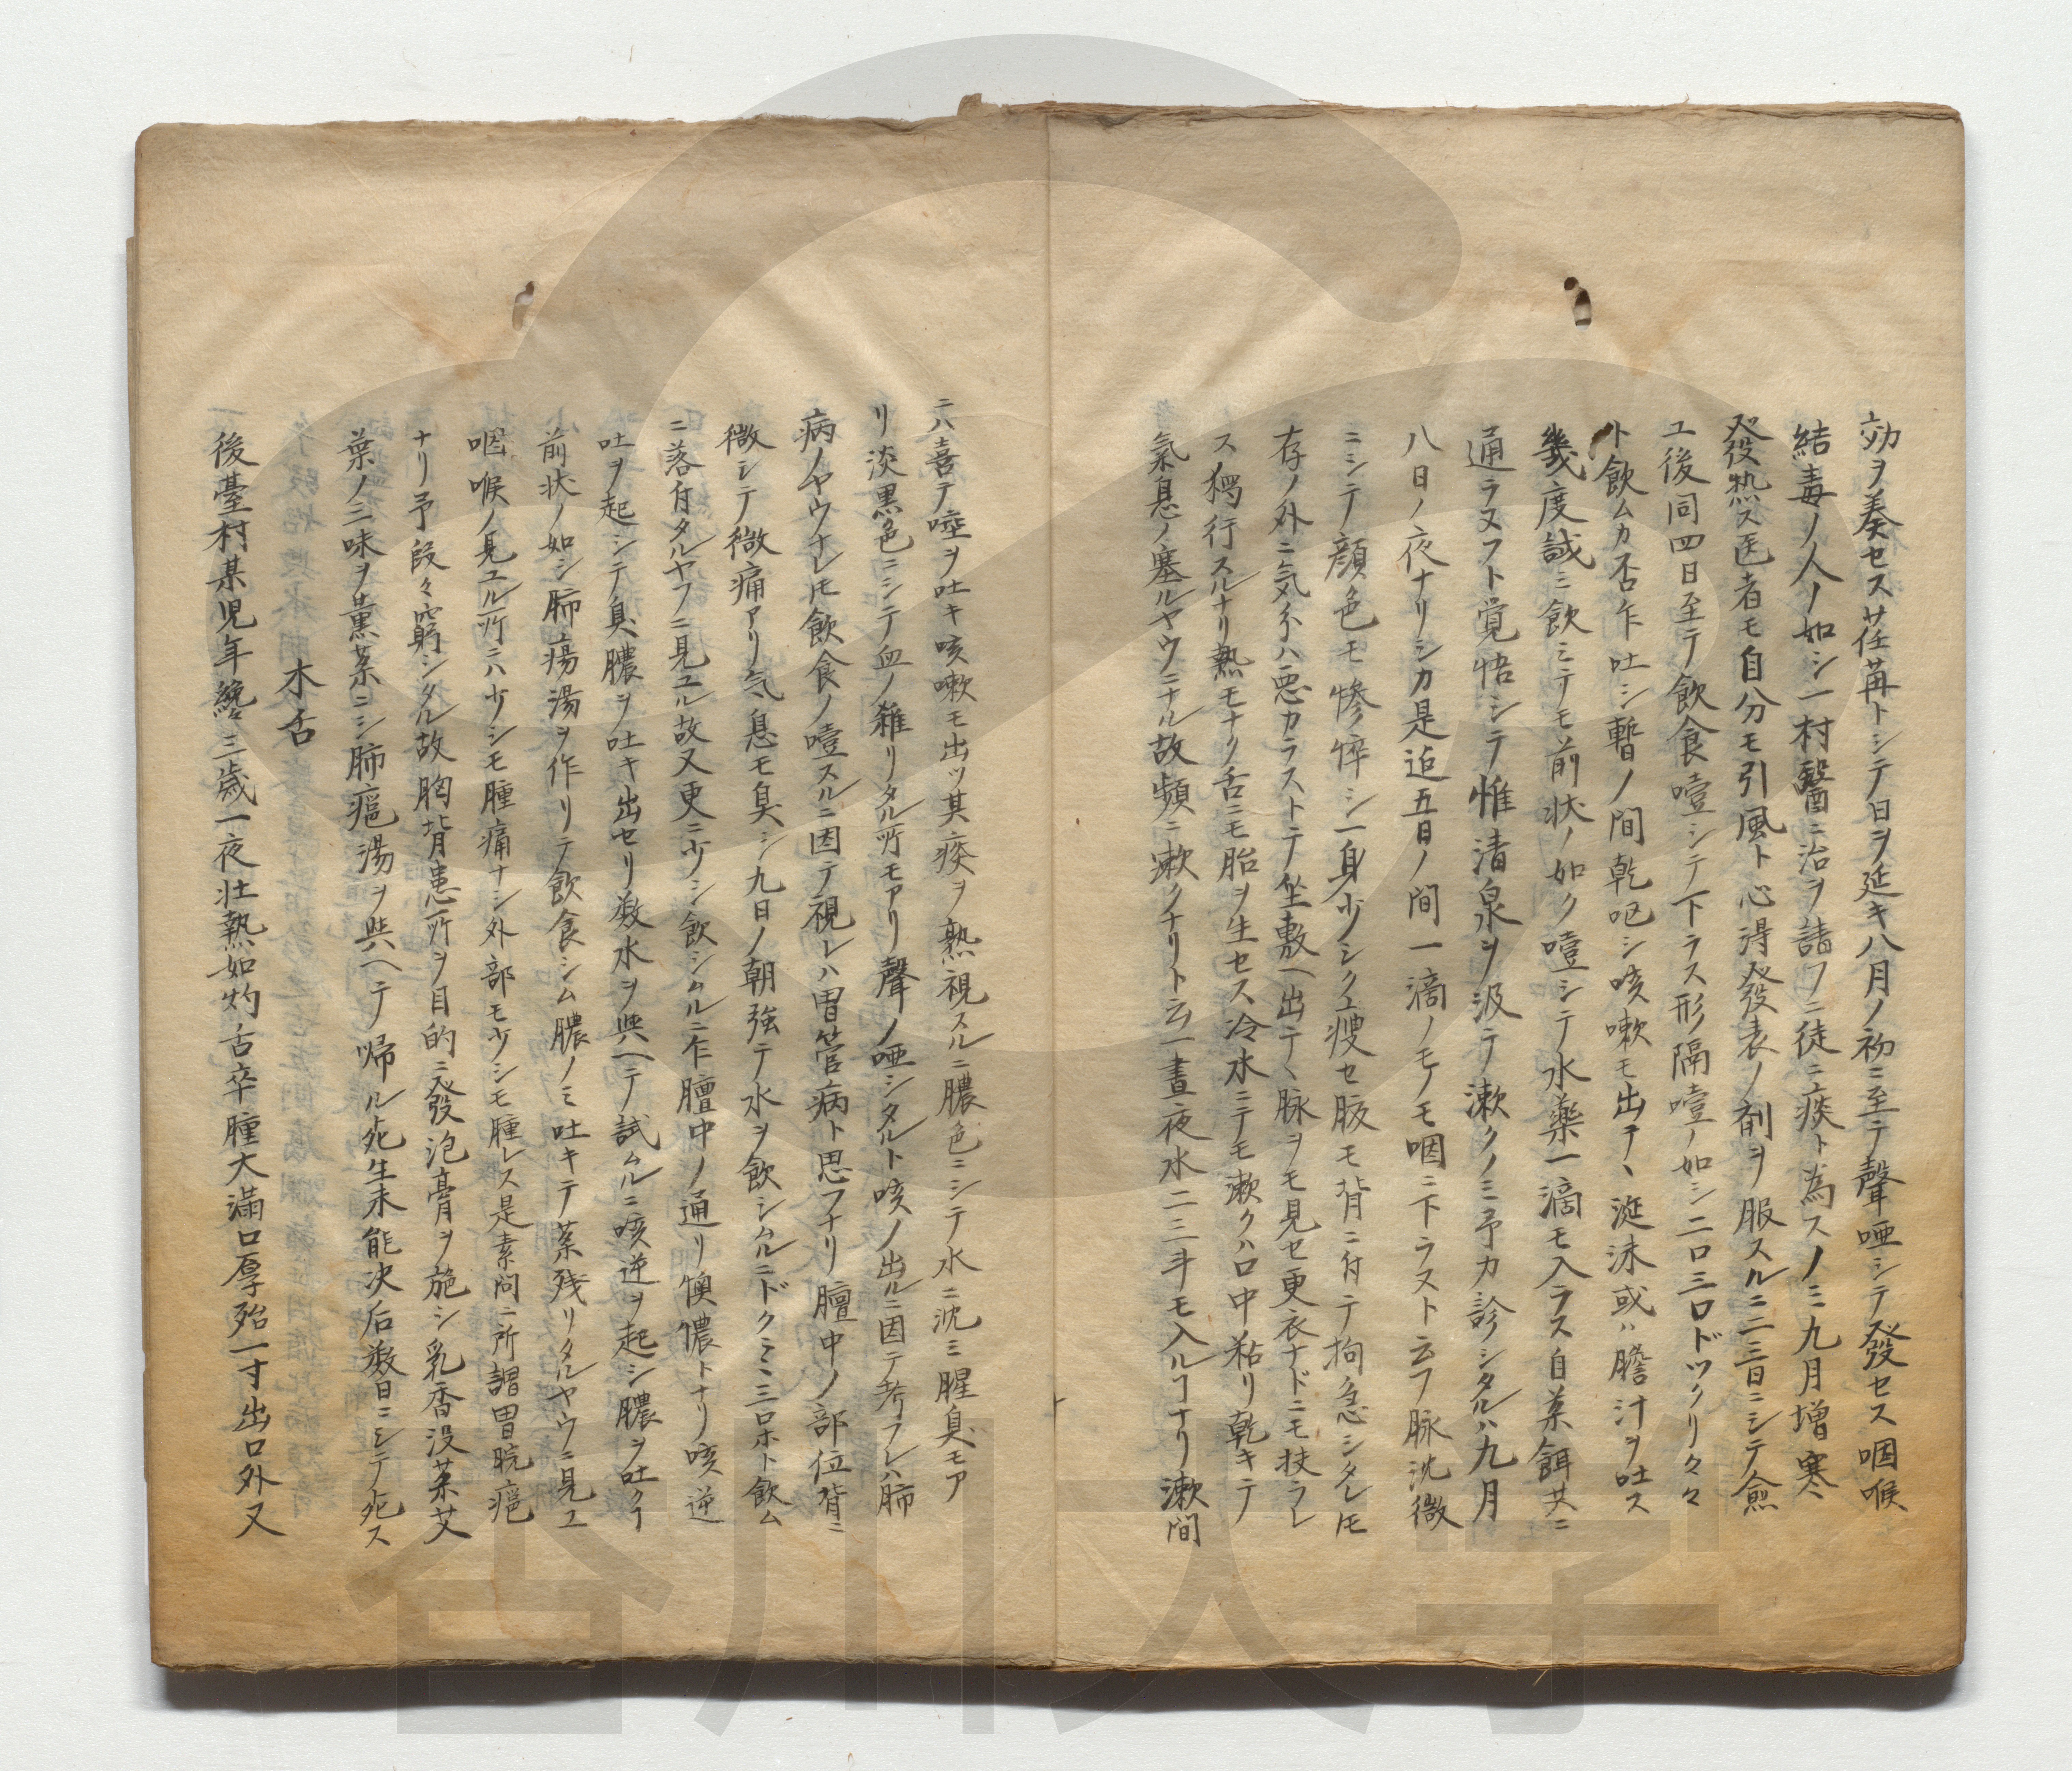 効ヲ奏セス荏苒トシテ日ヲ延キ八月ノ初ニ至テ聲唖シテ發セス咽喉
結毒ノ人ノ如シ一村醫ニ治ヲ請フニ徒ニ痰ト為スノミ九月増寒
發熱ス医者モ自分モ引風ト心得發表ノ剤ヲ服スルニ二三日ニシテ愈
ユ後同四日至テ飲食噎シテ下ラス形隔噎ノ如シ二口三口ドックリ々々
ト飲ムカ否乍吐シ暫ノ間乾呃シ咳嗽モ出テヽ涎沫或ハ膽汁ヲ吐ス
幾度誠ミ飲ミテモ前状ノ如ク噎シテ水藥一滴モ入ラス自菓餌共ニ
通ラヌフト覚悟シテ惟清泉ヲ汲テ漱クノミ予カ診シタルハ九月
八日ノ夜ナリシカ是迠五日ノ間一滴ノモノモ咽ニ下ラスト云フ脉沈微
ニシテ顔色モ惨悴シ一身少シク痩セ胶モ背ニ付テ拘急シタレ𪜈
存ノ外ニ気分ハ悪カラストテ坐敷ヘ出テヽ脉ヲモ見セ更衣ナドニモ扶ラレ
ス獨行スルナリ熱モナク舌ニモ胎ヲ生セス冷水ニテモ漱クハ口中粘リ乾キテ
氣息ノ塞ルヤウニナル故頻ニ漱クナリト云一晝夜水二三斗モ入ルヿナリ漱間
ニハ喜テ唾ヲ吐キ咳嗽モ出ツ其痰ヲ熟視スルニ膿色ニシテ水ニ沈ミ腥臭モア
リ淡黒色ニシテ血ノ雑リタル所モアリ聲ノ唖シタルト咳ノ出ルニ因テ考フレハ肺
病ノヤウナレ𪜈飲食ノ噎スルニ因テ視レハ胃管病ト思フナリ膻中ノ部位背ニ
微シテ微痛アリ気息モ臭シ九日ノ朝強テ水ヲ飲シムルニドクミミ三口ホト飲ム
ニ落付タルヤフニ見ユル故又更ニ少シ飲シムルニ乍膻中ノ通リ懊憹トナリ咳逆
吐ヲ起シテ臭膿ヲ吐キ出セリ数水ヲ與ヘテ試ムルニ咳逆ヲ起シ膿ヲ吐クヿ
前状ノ如シ肺瘍湯ヲ作リテ飲食シム膿ノミ吐キテ薬残リタルヤウニ見ユ
咽喉ノ見ユル所ニハ少シモ腫痛ナシ外部モ少シモ腫レス是素問ニ所謂胃脘癰
ナリ予段々窮シタル故胸背患所ヲ目的ニ發泡膏ヲ施シ乳香没薬艾
葉ノ三味ヲ薫薬ニシ肺癰湯ヲ與ヘテ帰ル死生未能决后数日ニシテ死ス
木舌
後臺村某児年纔三歳一夜壮熱如灼舌卒腫大満口厚殆一寸出口外又